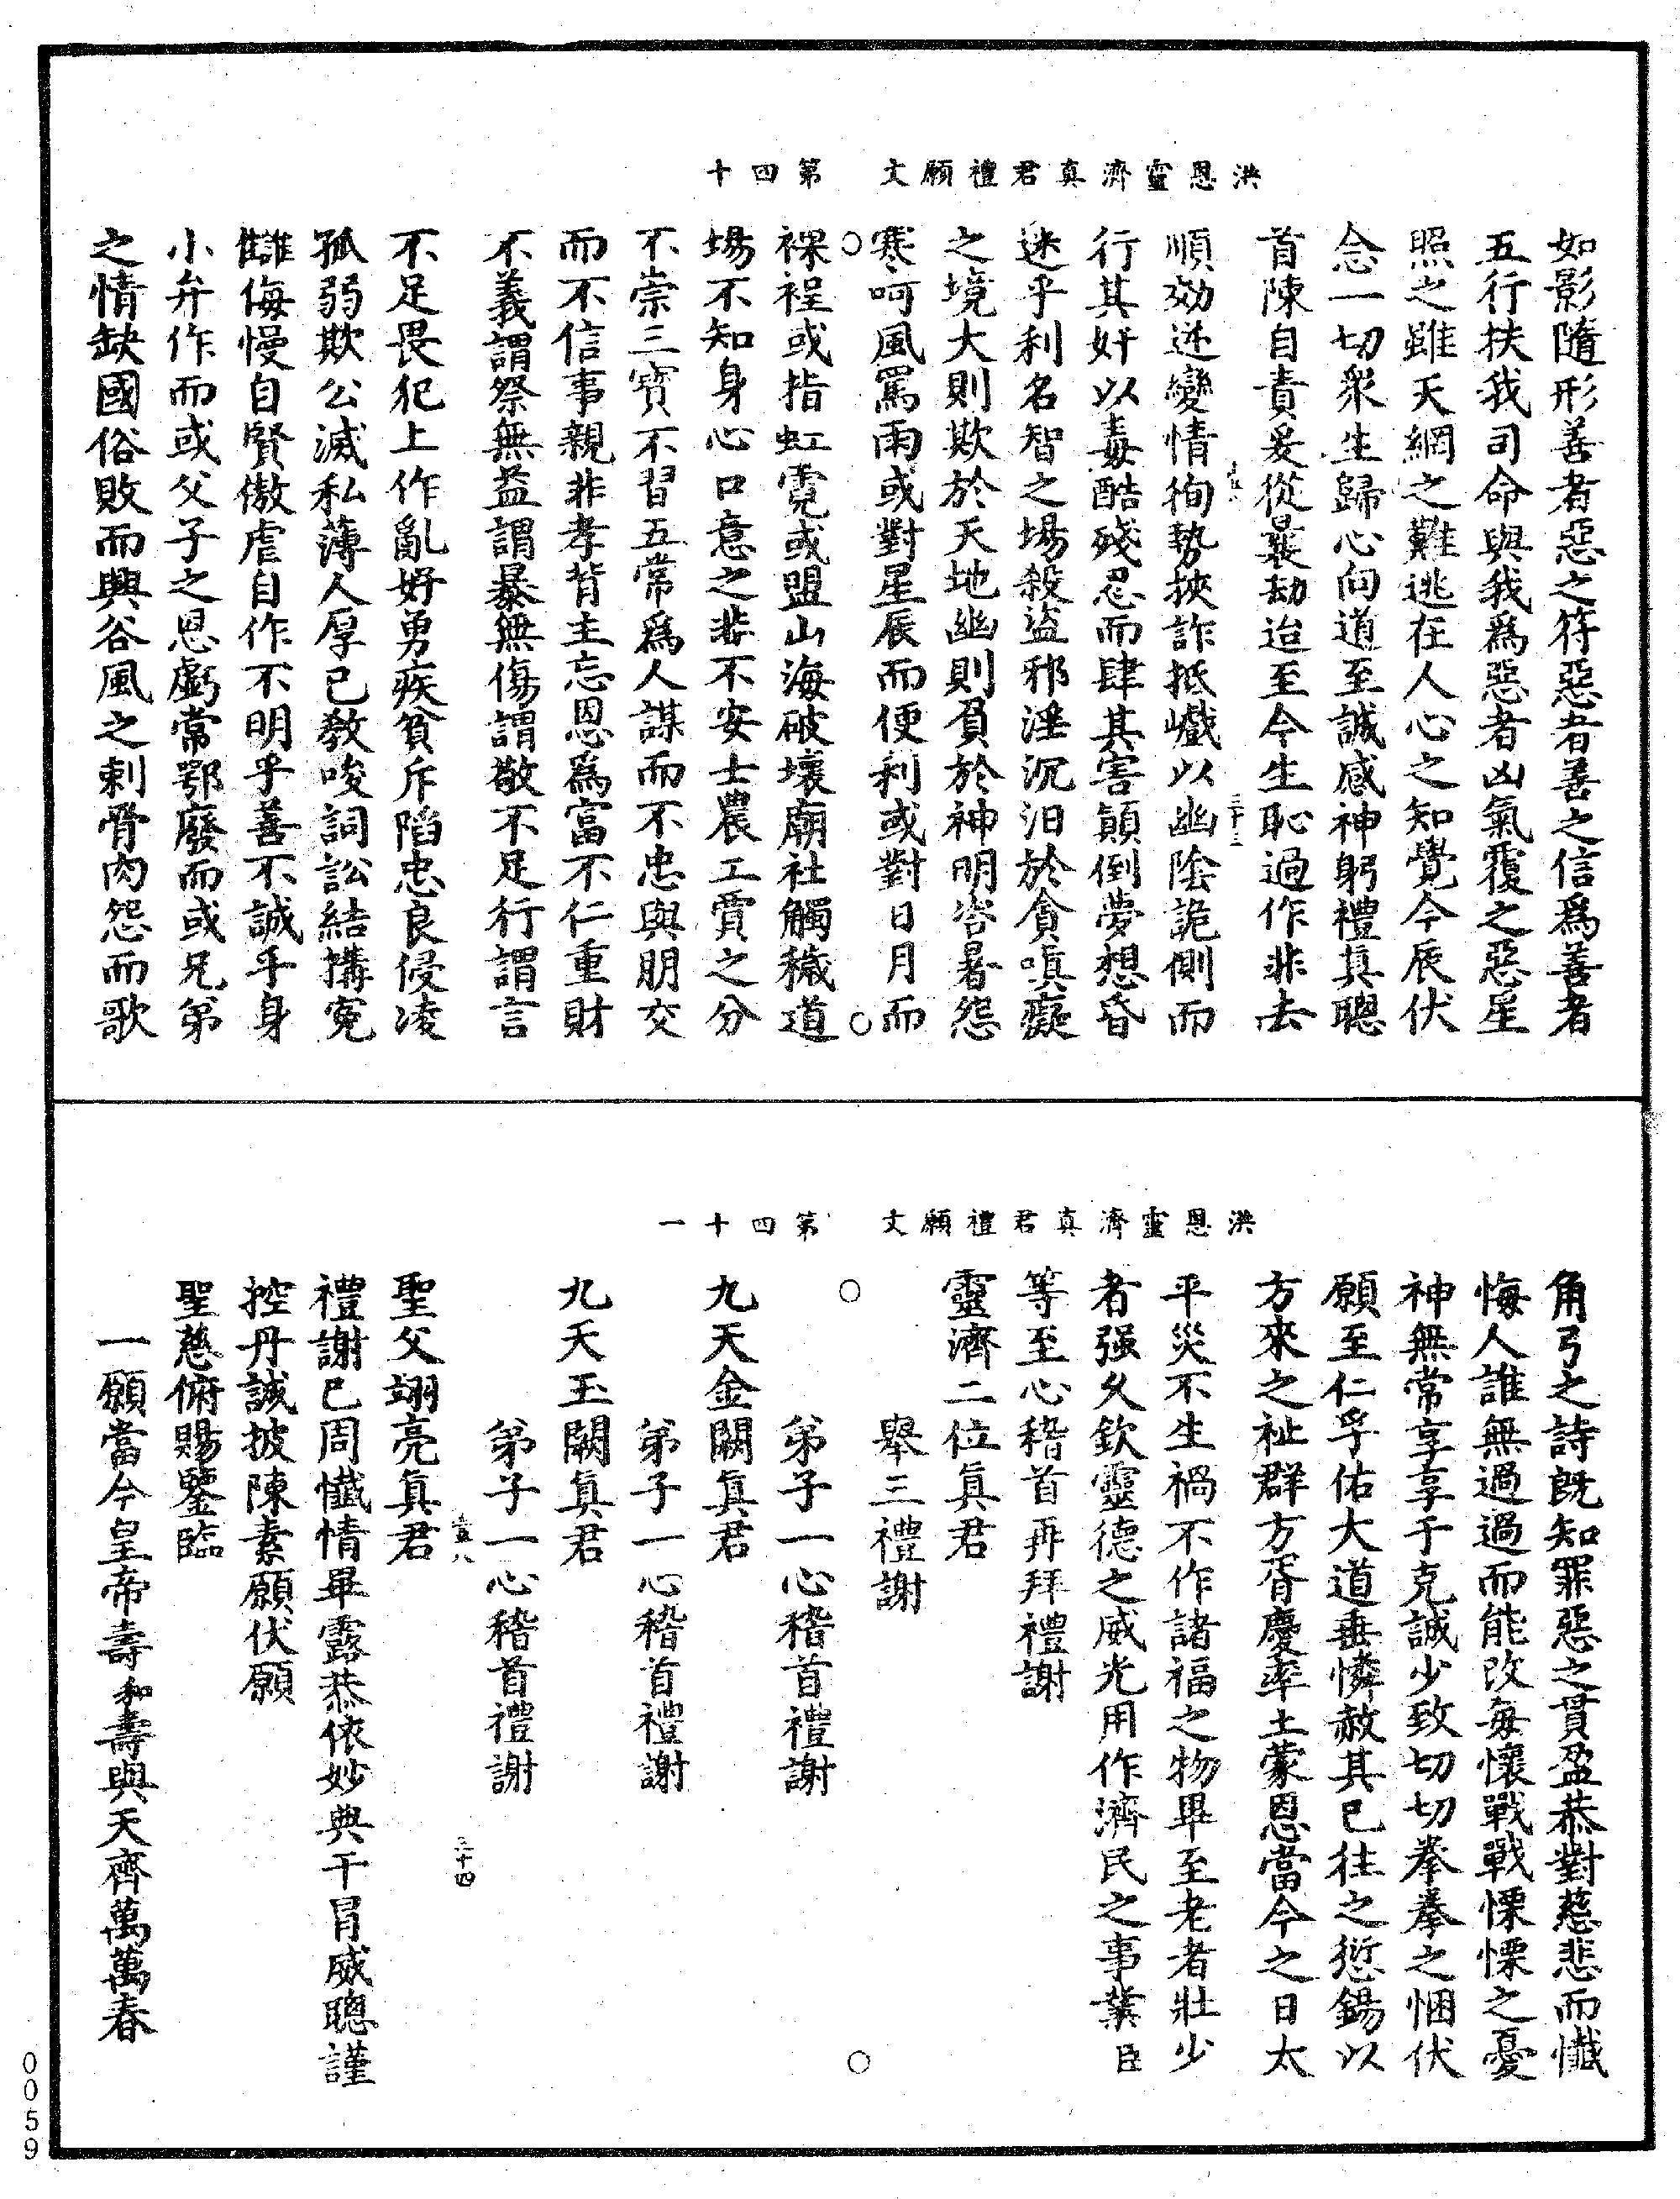 洪恩靈濟真君禮願文　第四十
如影隨形善者惡之符惡者善之信爲善者
五行扶我司命與我爲惡者凶氣覆之惡星
照之雖天網之難逃在人心之知覺今辰伏
念一切衆生歸心向道至誠感神躬禮真聰
首陳自責爰從曩劫迨至今生恥過作非去
三十三
順効逆變情徇勢挾詐抵巇以幽陰詭側而
行其奸以毒酷殘忍而肆其害顛倒夢想昏
迷乎利名智之場殺盜邪淫沉汨於貪嗔癡
之境大則欺於天地幽則負於神明咨暑怨
寒呵風罵雨或對星辰而便利或對日月而
裸裎或指虹霓或盟山海破壞廟社觸穢道
場不知身心口意之非不安士農工賈之分
不崇三寳不習五常爲人謀而不忠與朋交
而不信事親非孝背主忘恩爲富不仁重財
不義謂祭無益謂暴無傷謂敬不足行謂言
不足畏犯上作亂好勇疾貧斥陷忠良侵凌
孤弱欺公滅私薄人厚已教唆詞訟結搆寃
讎侮慢自賢傲虐自作不明乎善不誠乎身
小弁作而或父子之恩虧常鄂廢而或兄弟
之情缺國俗敗而興谷風之刺骨肉怨而歌
洪恩靈濟真君禮願文　第四十一
角弓之詩既知罪惡之貫盈恭對慈悲而懺
悔人誰無過過而能改每懷戰戰慄慄之憂
神無常享享于克誠少致切切拳拳之悃伏
願至仁孚佑大道垂憐赦其已往之愆錫以
方來之祉群方胥慶率土蒙恩當今之日太
平災不生禍不作諸福之物畢至老者壯少
者强久欽靈德之威光用作濟民之事業臣
等至心稽首再拜禮謝
靈濟二位真君
舉三禮謝
弟子一心稽首禮謝
九天金闕真君
弟子一心稽首禮謝
九天玉闕真君
弟子一心稽首禮謝
三十四
聖父翊亮真君
禮謝已周懺情畢露恭依妙典干冐威聰謹
控丹誠披陳素願伏願
聖慈俯賜鑒臨
一願當今皇帝壽和壽與天齊萬萬春
0059